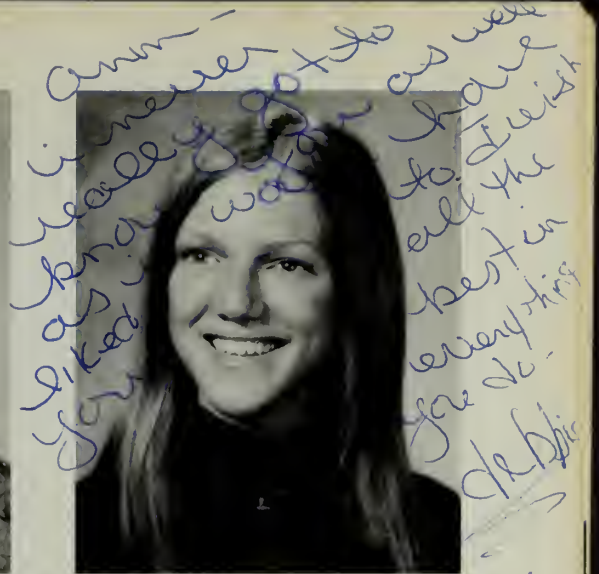 ann -
i never got to
really
know you as well
as i would have
liked to. I wish
you all the
best in
everything
you do.
debbie